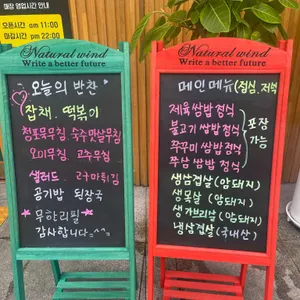 매장 영업시간 안내
오픈시간 am 11:00
마감시간 pm 22:00
Natural wind
Write a better future
오늘의 반찬
잡채. 떡볶이
청포묵무침 숙주맛살무침
오이무침 고추무침
샐러드 고구마튀김
공기밥 된장국
무한리필
감사합니다~^^
Natural wind
Write a better future
메인메뉴 (점심, 저녁
제육쌈밥정식
불고기 쌈밥정식
쭈꾸미 쌈밥정식
우삼쌈밥 정식
포장
가능
생삼겹살 (암돼지)
생목살 (암돼지)
생가브리살 (암돼지)
냉삼겹살 (국내산)